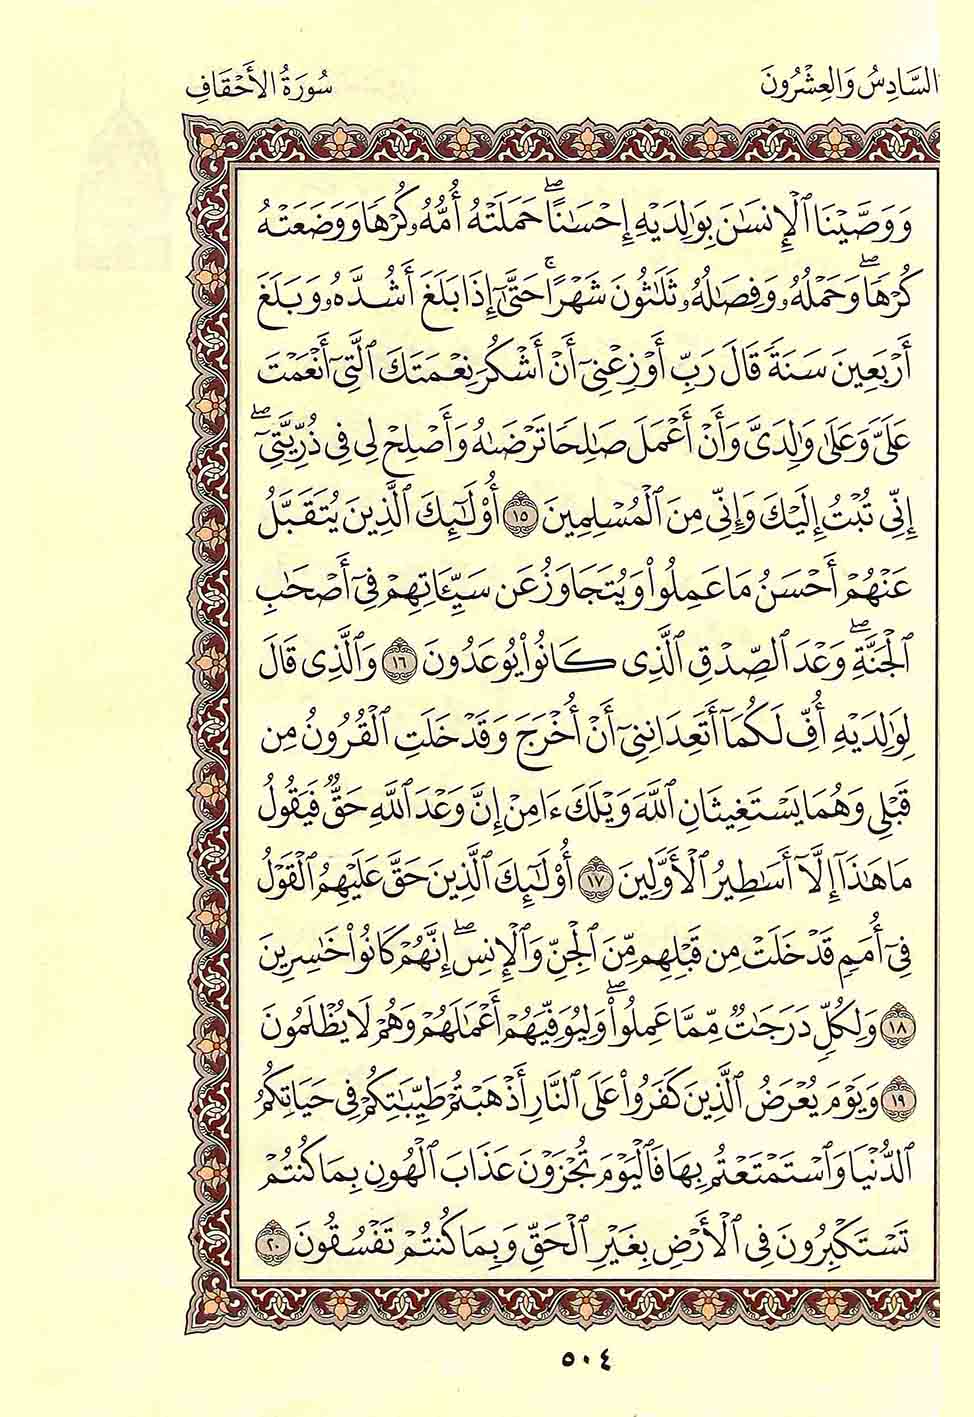 السَّادِسُ وَالعِشْرُونَ
سُورَةُ الأَحْقَافِ
وَوَصَّيْنَا ٱلْإِنسَٰنَ بِوَٰلِدَيْهِ إِحْسَٰنًاۖ حَمَلَتْهُ أُمُّهُۥ كُرْهًا وَوَضَعَتْهُ
كُرْهًاۖ وَحَمْلُهُۥ وَفِصَٰلُهُۥ ثَلَٰثُونَ شَهْرًاۚ حَتَّىٰٓ إِذَا بَلَغَ أَشُدَّهُۥ وَبَلَغَ
أَرْبَعِينَ سَنَةً قَالَ رَبِّ أَوْزِعْنِىٓ أَنْ أَشْكُرَ نِعْمَتَكَ ٱلَّتِىٓ أَنْعَمْتَ
عَلَىَّ وَعَلَىٰ وَٰلِدَىَّ وَأَنْ أَعْمَلَ صَٰلِحًا تَرْضَىٰهُ وَأَصْلِحْ لِى فِى ذُرِّيَّتِىٓۖ
إِنِّى تُبْتُ إِلَيْكَ وَإِنِّى مِنَ ٱلْمُسْلِمِينَ ١٥ أُو۟لَٰٓئِكَ ٱلَّذِينَ يُتَقَبَّلُ
عَنْهُمْ أَحْسَنُ مَا عَمِلُوا۟ وَيُتَجَاوَزُ عَن سَيِّـَٔاتِهِمْ فِىٓ أَصْحَٰبِ
ٱلْجَنَّةِۖ وَعْدَ ٱلصِّدْقِ ٱلَّذِى كَانُوا۟ يُوعَدُونَ ١٦ وَٱلَّذِى قَالَ
لِوَٰلِدَيْهِ أُفٍّ لَّكُمَآ أَتَعِدَانِنِىٓ أَنْ أُخْرَجَ وَقَدْ خَلَتِ ٱلْقُرُونُ مِن
قَبْلِى وَهُمَا يَسْتَغِيثَانِ ٱللَّهَ وَيْلَكَ ءَامِنْ إِنَّ وَعْدَ ٱللَّهِ حَقٌّ فَيَقُولُ
مَا هَٰذَآ إِلَّآ أَسَٰطِيرُ ٱلْأَوَّلِينَ ١٧ أُو۟لَٰٓئِكَ ٱلَّذِينَ حَقَّ عَلَيْهِمُ ٱلْقَوْلُ
فِىٓ أُمَمٍ قَدْ خَلَتْ مِن قَبْلِهِم مِّنَ ٱلْجِنِّ وَٱلْإِنسِۖ إِنَّهُمْ كَانُوا۟ خَٰسِرِينَ
١٨ وَلِكُلٍّ دَرَجَٰتٌ مِّمَّا عَمِلُوا۟ۖ وَلِيُوَفِّيَهُمْ أَعْمَٰلَهُمْ وَهُمْ لَا يُظْلَمُونَ
١٩ وَيَوْمَ يُعْرَضُ ٱلَّذِينَ كَفَرُوا۟ عَلَى ٱلنَّارِ أَذْهَبْتُمْ طَيِّبَٰتِكُمْ فِى حَيَاتِكُمُ
ٱلدُّنْيَا وَٱسْتَمْتَعْتُم بِهَا فَٱلْيَوْمَ تُجْزَوْنَ عَذَابَ ٱلْهُونِ بِمَا كُنتُمْ
تَسْتَكْبِرُونَ فِى ٱلْأَرْضِ بِغَيْرِ ٱلْحَقِّ وَبِمَا كُنتُمْ تَفْسُقُونَ ٢٠
٥٠٤